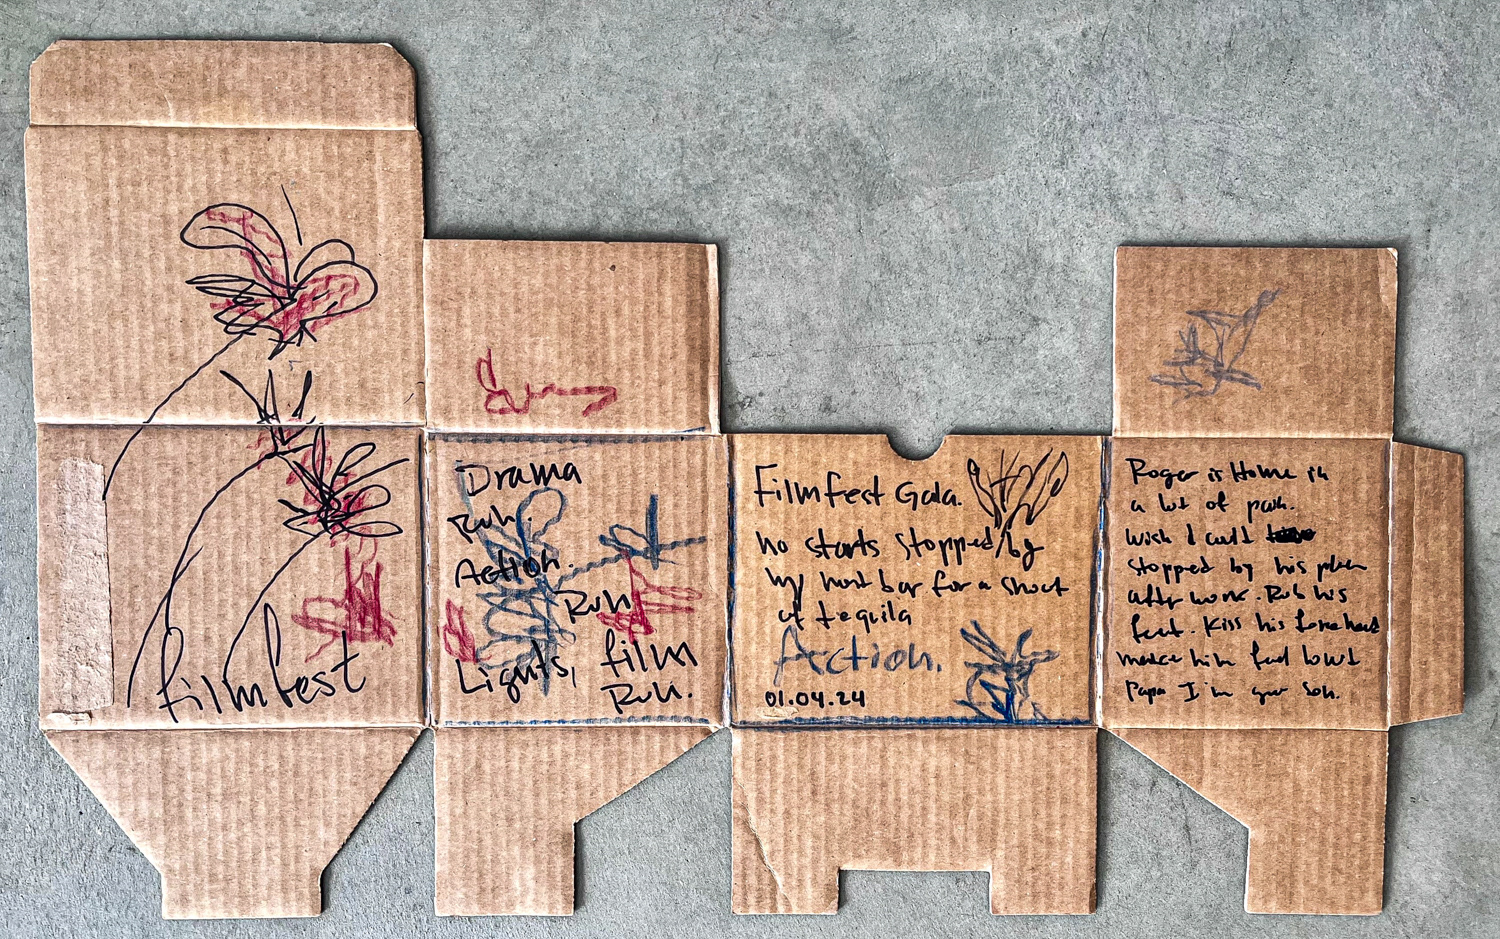 filmfest
Drama
Ruh.
Action.
Ruh.
Lights, film
Ruh.
Filmfest Gala.
no stars stopped by
my hotel bar for a shot
of tequila
Action.
01.04.24
Roger is Home in
a lot of pain.
Wish I could
stopped by his place
after work. Rub his
feet. Kiss his forehead
make him feel
Papa I'm your son.